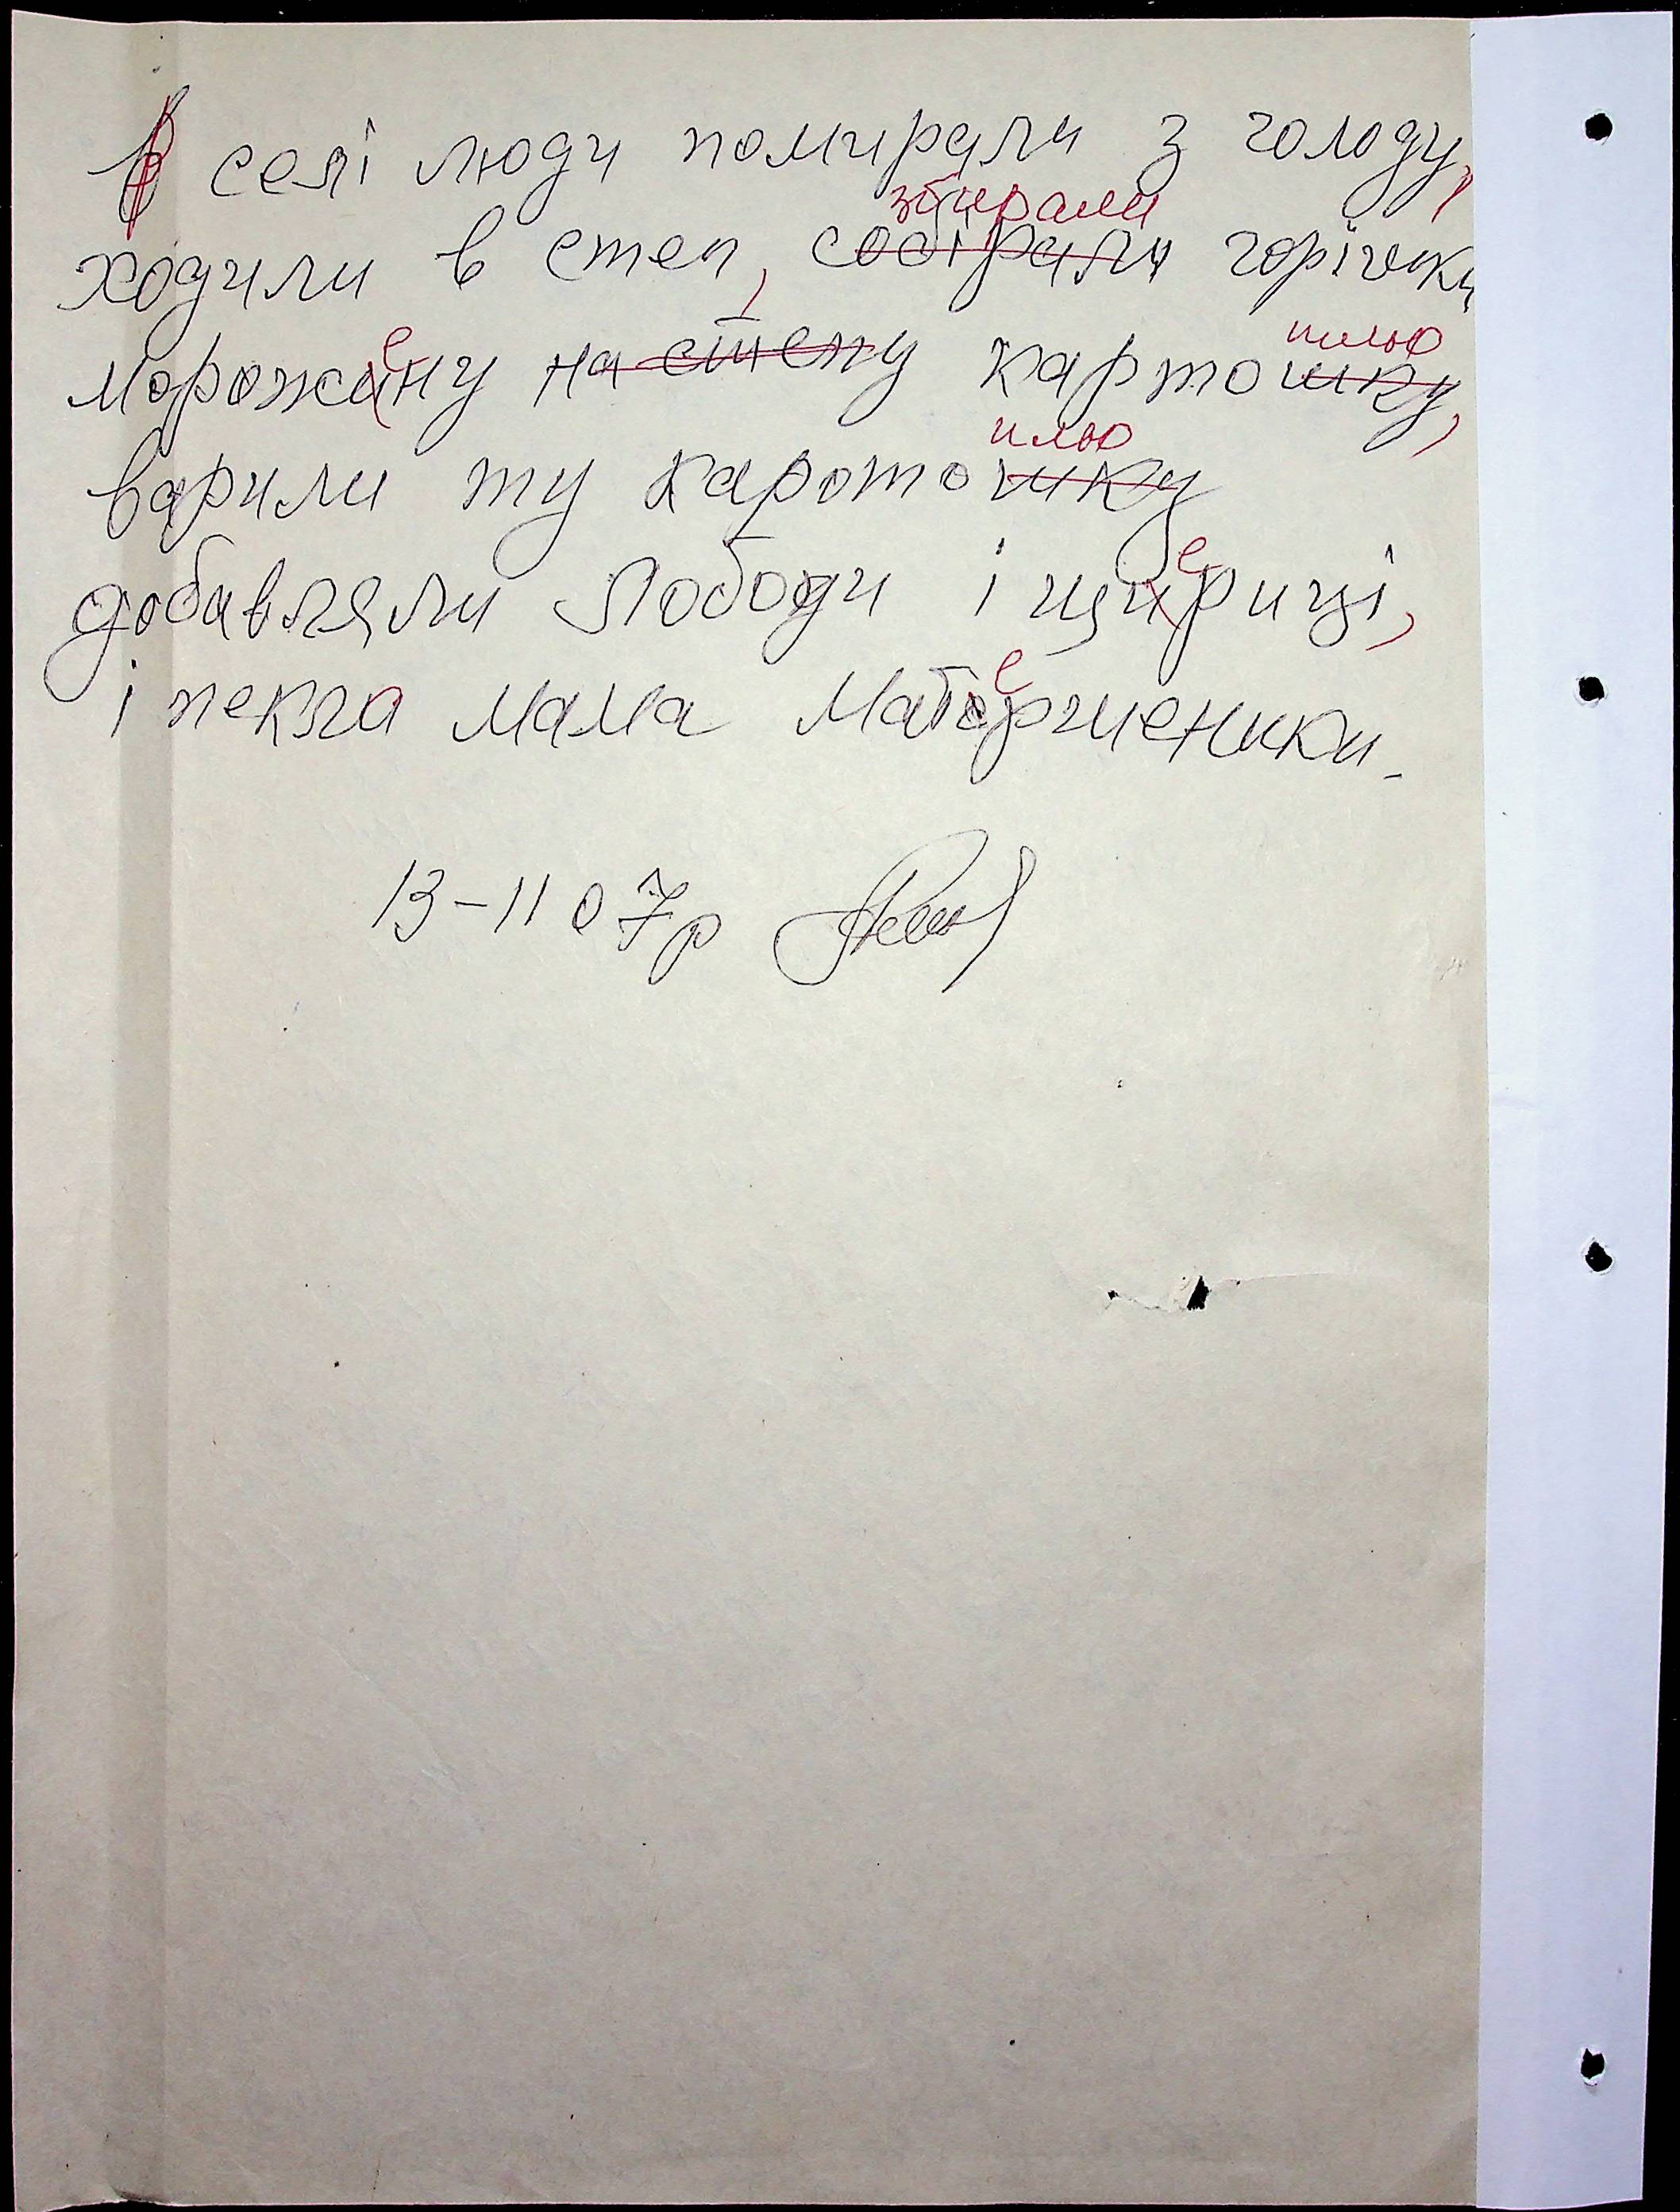 В селі люди помирали з голоду,
збирали
ходили в степ, собірали горічки
плю
морожену на степу картошку,
плю
варили ту каротошку
добавляли лободи і щириці,
і пекла мама маторженики.
13-11 07р